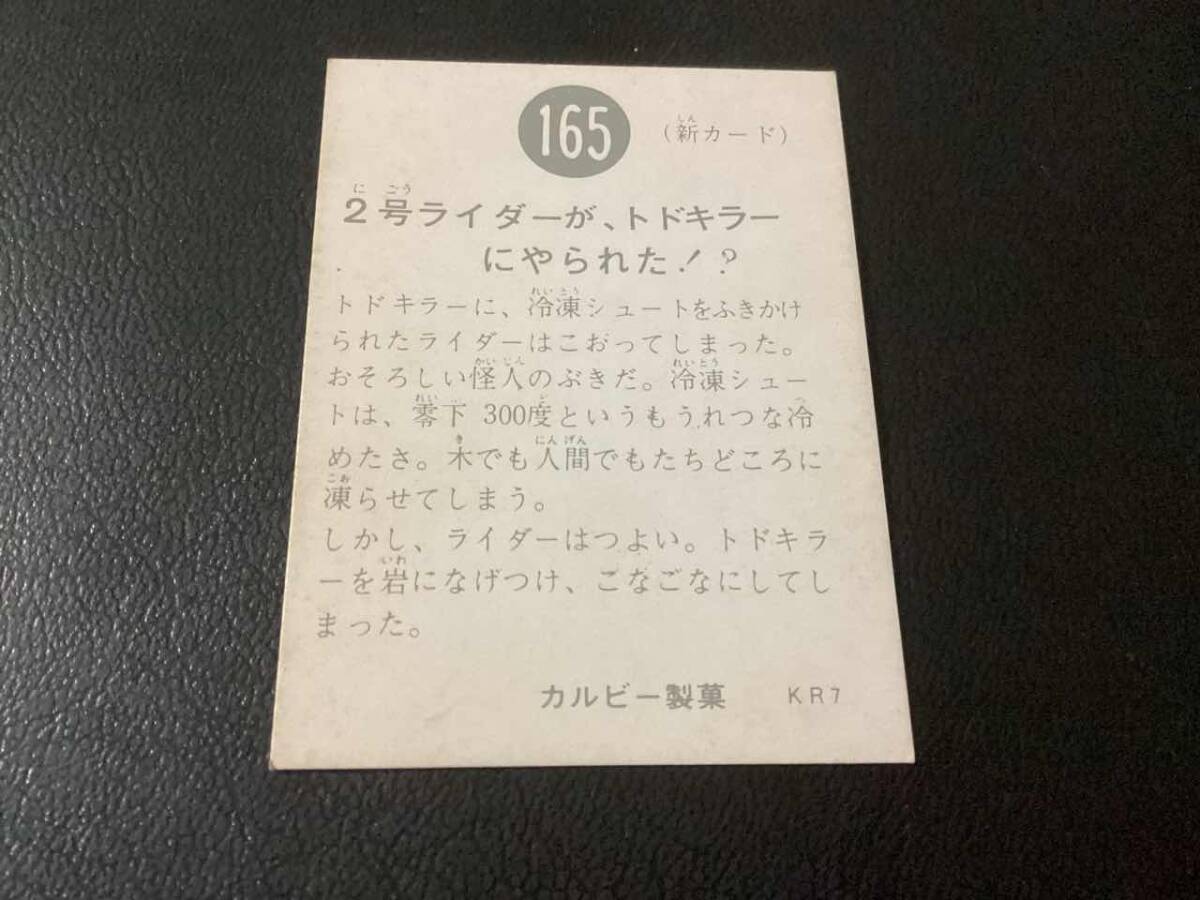 165 (新カード)
2号ライダーが、トドキラー
にやられた!?
トドキラーに、冷凍シュートをふきかけ
られたライダーはこおってしまった。
おそろしい怪人のぶきだ。冷凍シュー
トは、零下 300度というもうれつな冷
めたさ。木でも人間でもたちどころに
凍らせてしまう。
しかし、ライダーはつよい。トドキラ
ーを岩になげつけ、こなごなにしてし
まった。
カルビー製菓 KR7